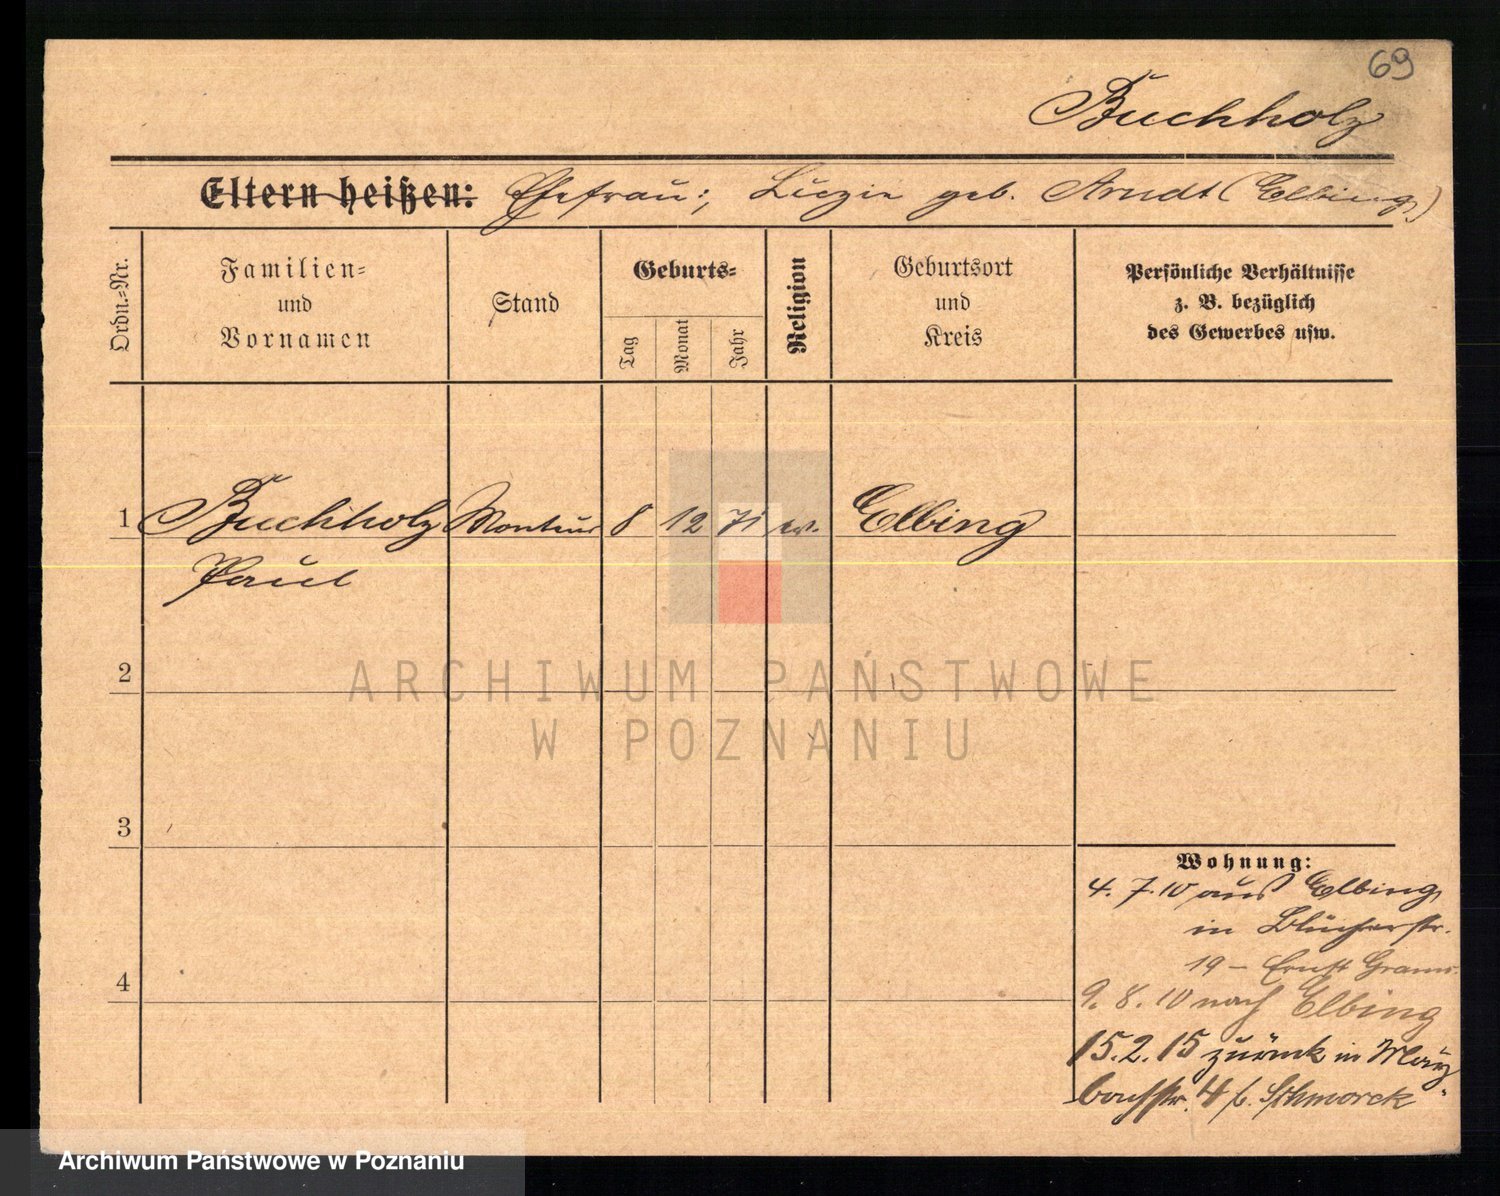 69
Buchholz
Eltern heißen: Ehefrau: Luzie geb. Arndt (Elbing)
Ordn.=Nr.
Familien=
und
Vornamen
Stand
Geburts=
Tag
Monat
Jahr
Religion
Geburtsort
und
Kreis
Persönliche Verhältnisse
z. B. bezüglich
des Gewerbes usw.
1 Buchholz Monteur 8 12 71 ev. Elbing
Paul
2
ARCHIWUM PAŃSTWOWE
W POZNANIU
3
Wohnung:
4. 7. 10 aus Elbing
in Blücherstr.
19 – Ernst
4
9. 8. 10 nach Elbing
15. 2. 15 zurück in May=
bachstr. 4 b. Schmorek
Archiwum Państwowe w Poznaniu